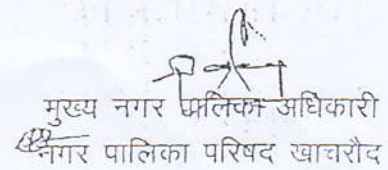 मुख्य नगर पालिका अधिकारी
नगर पालिका परिषद खाचरौद